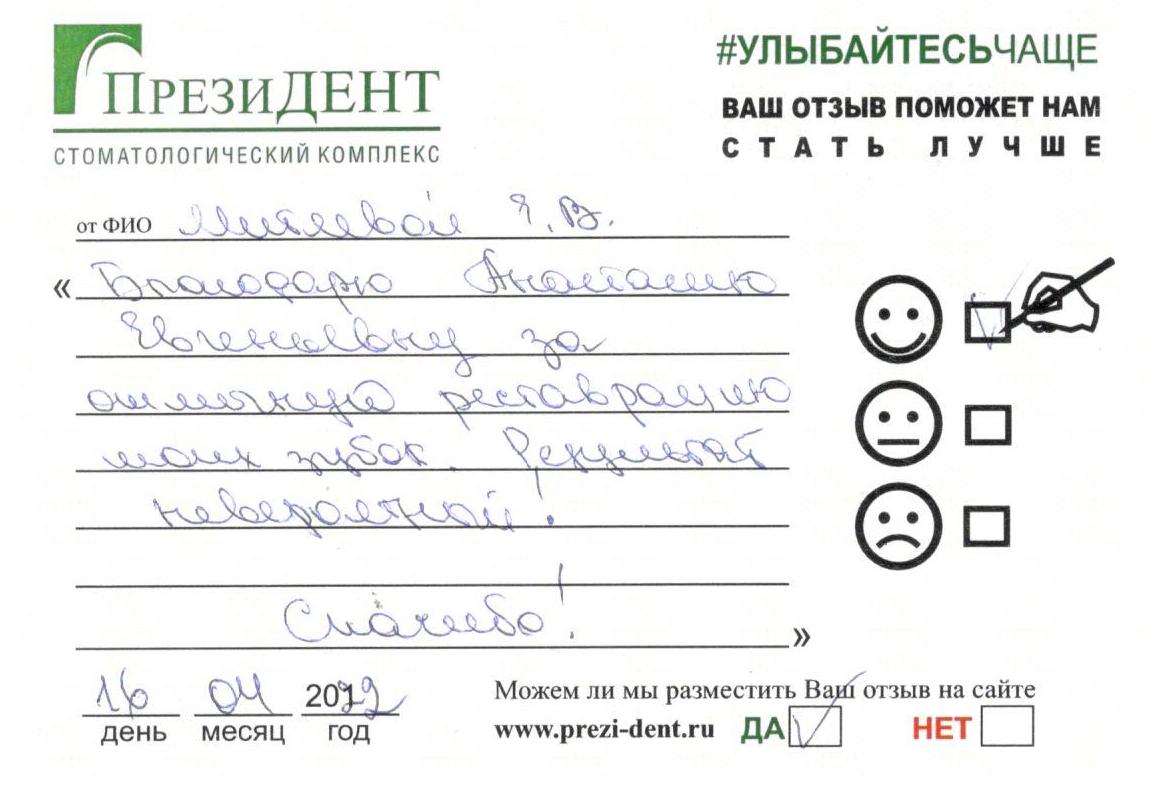 ПРЕЗИДЕНТ
СТОМАТОЛОГИЧЕСКИЙ КОМПЛЕКС
#УЛЫБАЙТЕСЬЧАЩЕ
ВАШ ОТЗЫВ ПОМОЖЕТ НАМ
СТАТЬ ЛУЧШЕ
от ФИО Митяевой Я.В.
« Благодарю Анастасию
Евгеньевну за
отличную реставрацию
моих зубок. Результат
невероятной!
Спасибо! »
16 04 2022
день месяц год
Можем ли мы разместить Ваш отзыв на сайте
www.prezi-dent.ru ДА НЕТ